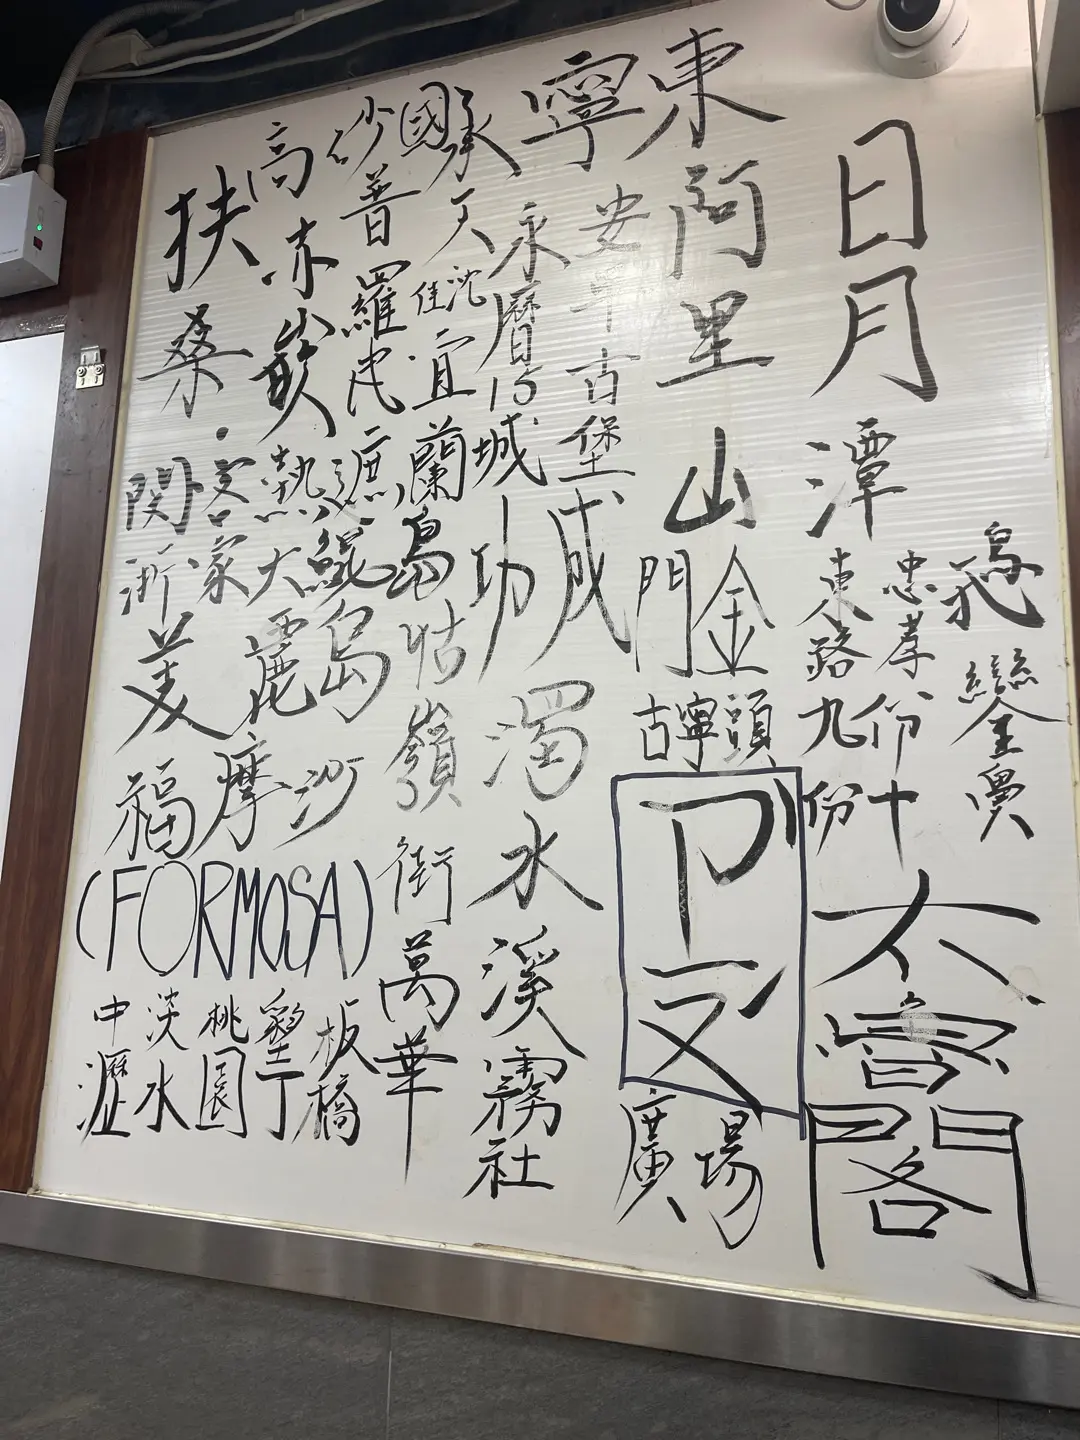 日月潭
烏
鑾
忠孝
東路
九份
十份
太魯閣
東
阿里山
金門
古寧頭
廣場
寧
安平古堡
成功
永曆15
城
濁水溪
霧社
承天
沈佳
宜蘭
島
牯嶺街
萬華
國
砂
普羅民遮
鯤島
高
赤嵌
熱
大
扶桑
客家
閩浙
美麗島
福摩沙
(FORMOSA)
板橋
墾丁
桃園
淡水
中壢